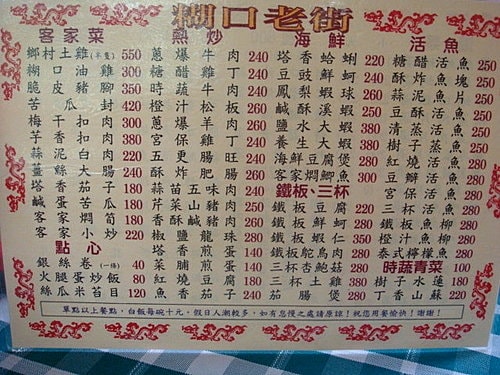 糊口老街
客家菜
鄉村土雞(半隻) 550
糊口油雞 300
脆皮豬腳 350
苦瓜封 420
梅干扣肉 300
芋香扣肉 380
蒜泥白肉 220
薑絲大腸 240
塔香茄子 180
鹹蛋苦瓜 180
客家燜筍 180
客家小炒 220
點心
銀絲卷(一條) 40
火腿蛋炒飯 80
絲瓜米苔目 120
熱炒
蔥爆牛肉 240
糖醋雞丁 240
時蔬牛肉 240
橙汁松板 260
蔥爆羊肉 260
宮保雞丁 240
五更腸旺 240
酥炸肥腸 260
椒鹽龍珠 280
塔香煎蛋 140
菜脯煎蛋 140
紅燒豆腐 240
魚香茄子 240
海鮮
塔香蛤蜊 220
豆豉鮮蚵 240
鳳梨蝦球 260
鹹酥溪蝦 250
鹽水大蝦 380
養生大蝦 380
海鮮豆腐煲 280
客家燜魚 300
鐵板、三杯
鐵板豆腐 220
鐵板鮮蚵 280
鐵板蝦仁 350
鐵板鴕鳥肉 280
三杯杏鮑菇 280
三杯土雞 380
茄腸煲 280
活魚
糖醋活魚 250
酥炸魚塊 250
蒜泥魚片 250
豆酥活魚 250
清蒸活魚 250
樹子蒸魚 250
紅燒活魚 250
豆瓣活魚 250
宮保活魚 250
三杯活魚 280
橙汁魚片 280
泰式檸檬魚 280
時蔬青菜 100
樹子水蓮 180
丁香山蘇 220
單點以上餐點，白飯每碗十元，假日人潮較多，如有怠慢之處請原諒！祝您用餐愉快！謝謝！